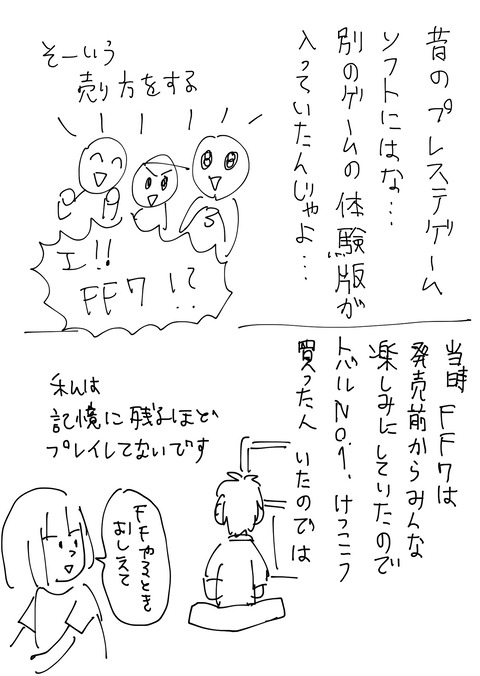 昔のプレステゲーム
ソフトにはな…
別のゲームの体験版が
入っていたんじゃよ…
そーいう
売り方をする
エ!!
FF7!?
当時FF7は
発売前からみんな
楽しみにしていたので
トバルNo.1、けっこう
買った人いたのでは
私は
記憶に残るほど
プレイしてないです
FFやるとき
おしえて